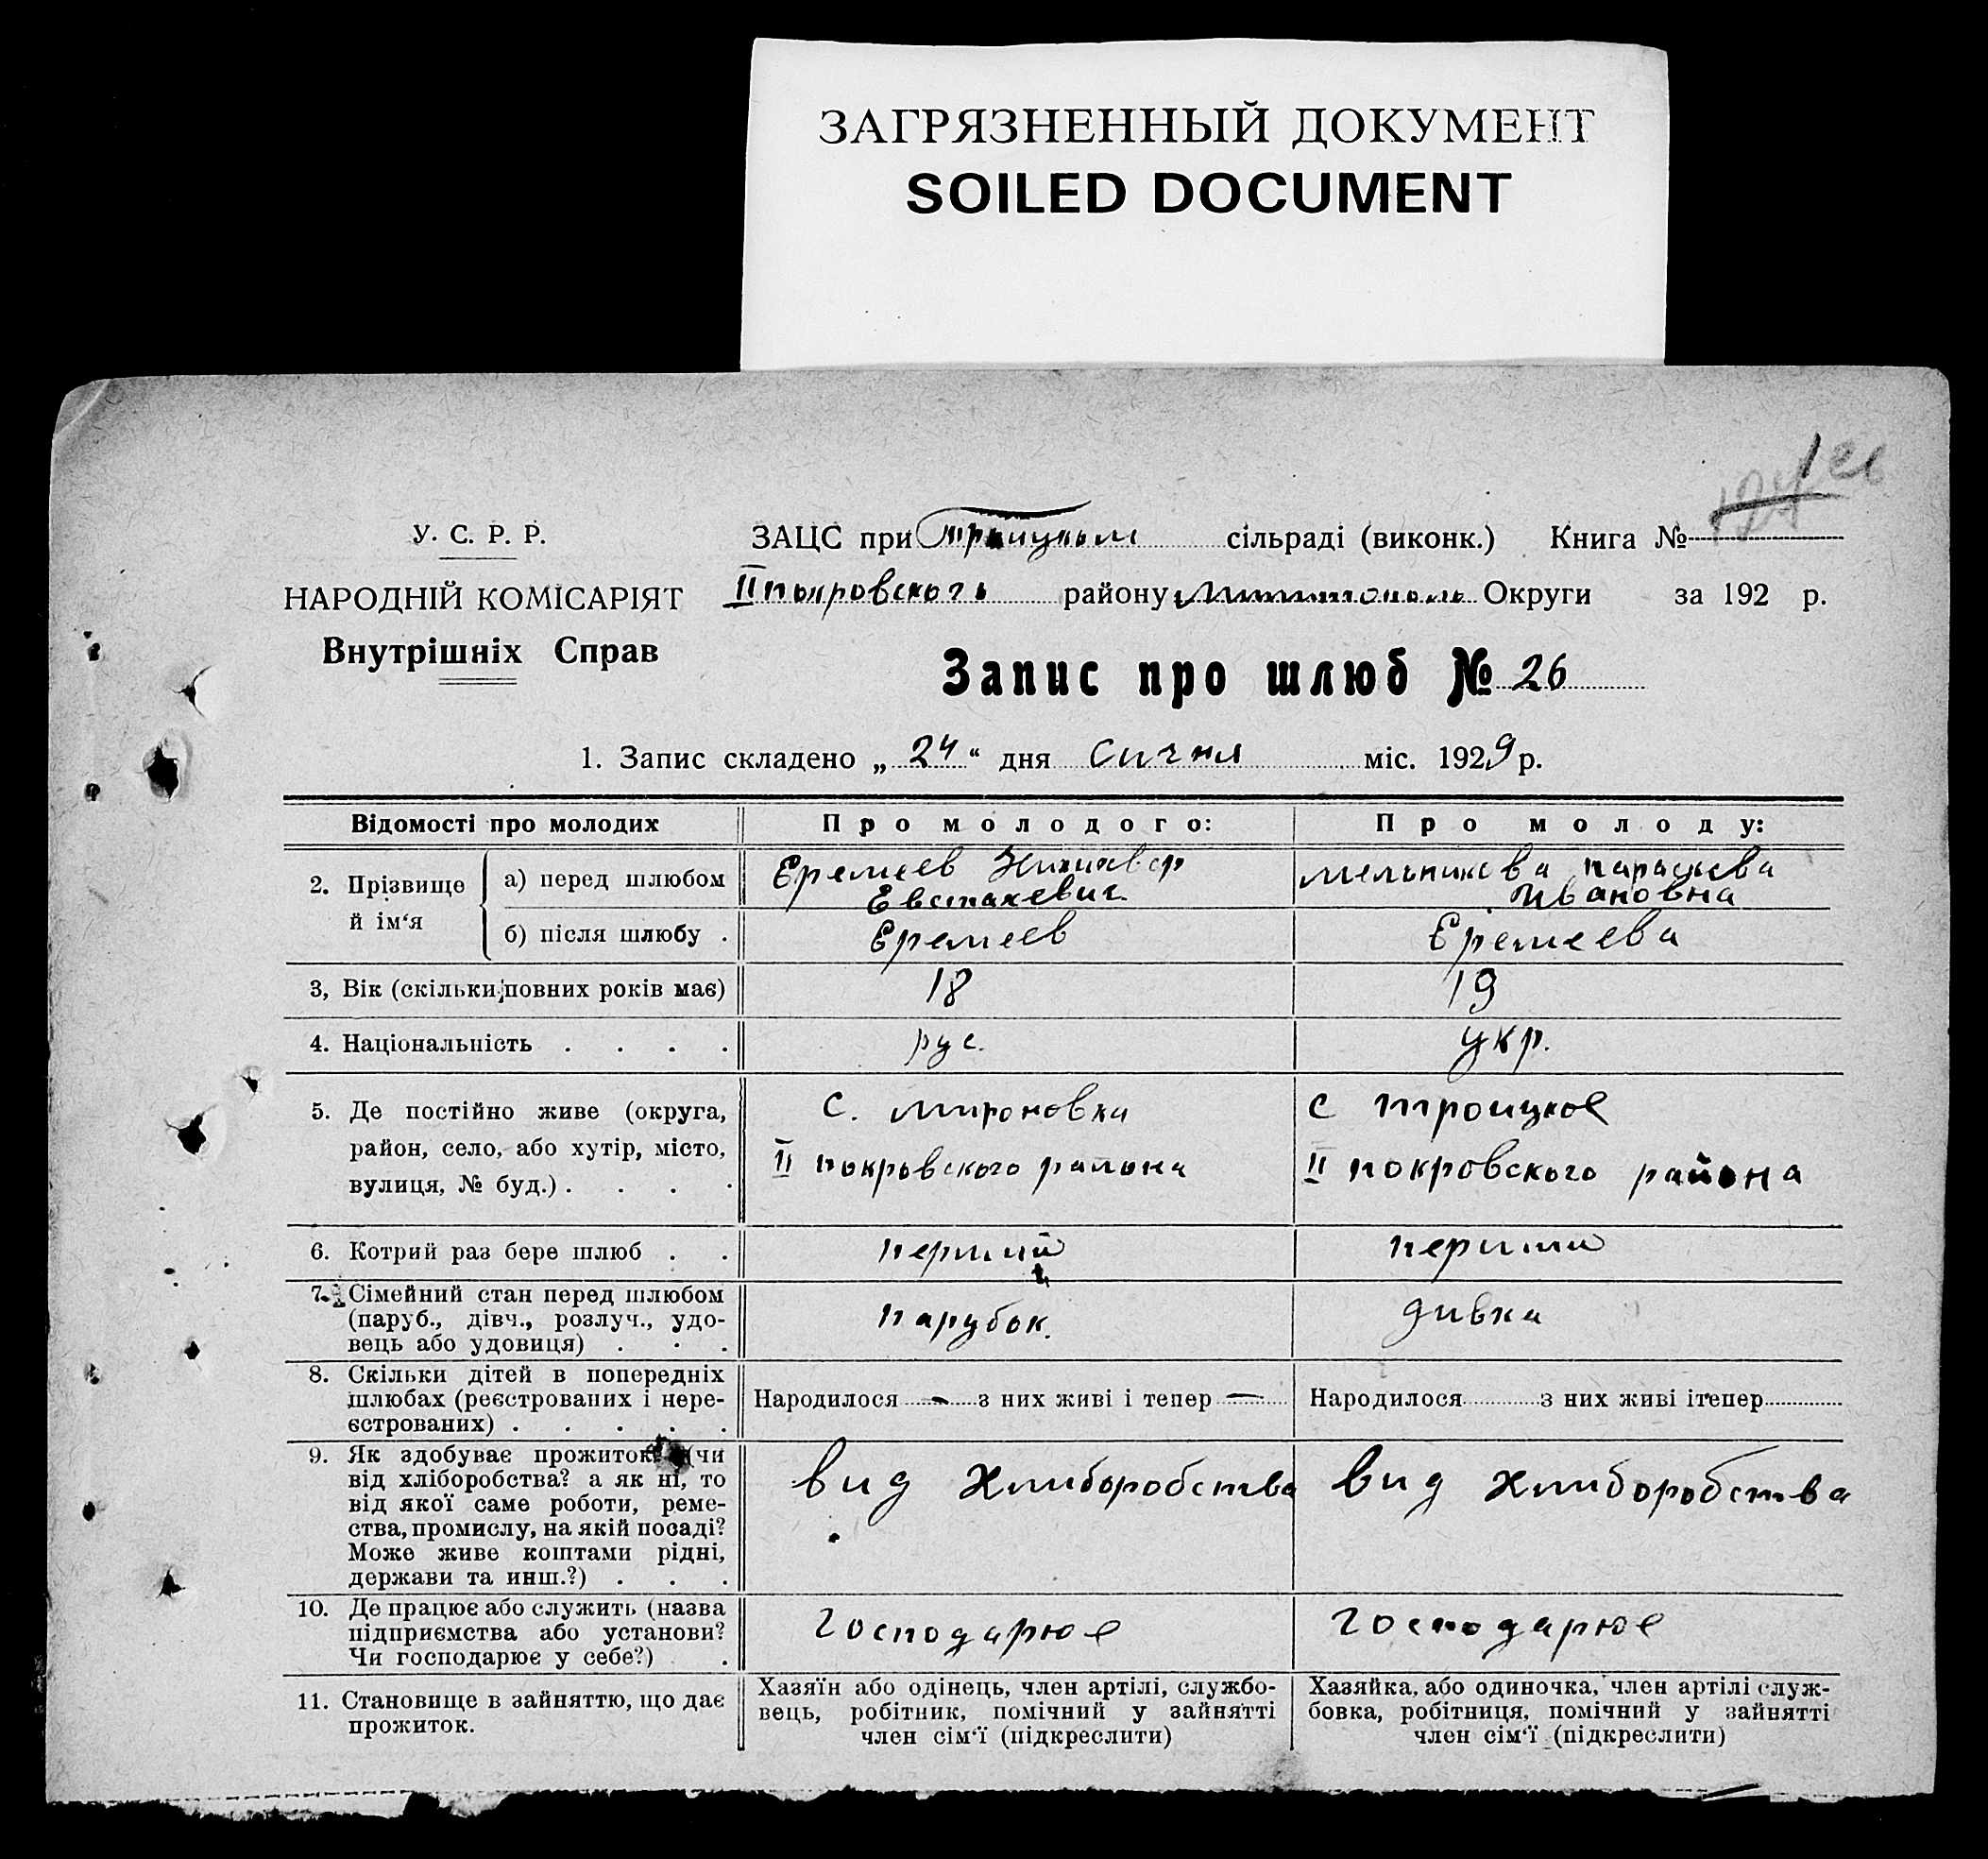 ЗАГРЯЗНЕННЫЙ ДОКУМЕНТ
SOILED DOCUMENT
У. С. Р. Р.
НАРОДНІЙ КОМІСАРІЯТ
Внутрішніх Справ
ЗАЦС при Троицком сільраді (виконк.) Книга №
II покровского району Округи за 192 р.
Запис про шлюб № 26
1. Запис складено „ 24 “ дня сичня міс. 1929 р.
Відомості про молодих
Про молодого:
Про молоду:
2. Прізвище й ім‘я
а) перед шлюбом
Еремеев
Евстахевич
мельникова параскева
Ивановна
б) після шлюбу .
Еремеев
Еремеева
3, Вік (скільки повних років має)
18
19
4. Національність . . . .
рус.
укр.
5. Де постійно живе (округа,
район, село, або хутір, місто,
вулиця, № буд.) . . . .
с. мироновка
II покровского района
с троицкое
II покровского района
6. Котрий раз бере шлюб . .
перший
перший
7. Сімейний стан перед шлюбом
(паруб., дівч., розлуч., удо-
вець або удовиця) . . .
парубок.
дивка
8. Скільки дітей в попередніх
шлюбах (реєстрованих і нере-
єстрованих) . . . . .
Народилося - з них живі і тепер -
Народилося з них живі ітепер
9. Як здобуває прожиток? (чи
від хліборобства? а як ні, то
від якої саме роботи, реме-
ства, промислу, на якій посаді?
Може живе коштами рідні,
держави та инш.?) . . .
вид хлиборобства
вид хлиборобства
10. Де працює або служить (назва
підприємства або установи?
Чи господарює у себе?) .
господарюе
господарюе
11. Становище в зайняттю, що дає
прожиток.
Хазяїн або одінець, член артілі, службо-
вець, робітник, помічний у зайнятті
член сім‘ї (підкреслити)
Хазяйка, або одиночка, член артілі служ-
бовка, робітниця, помічний у зайнятті
член сім‘ї (підкреслити)